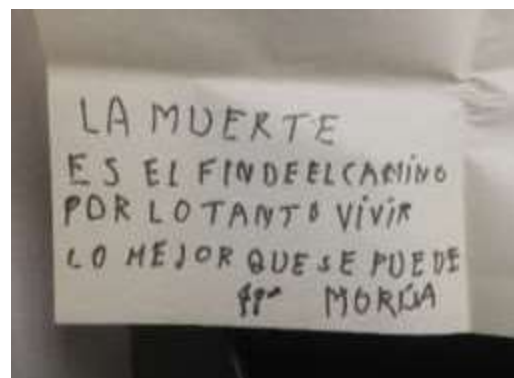 LA MUERTE
ES EL FIN DE EL CAMINO
POR LO TANTO VIVIR
LO MEJOR QUE SE PUEDE